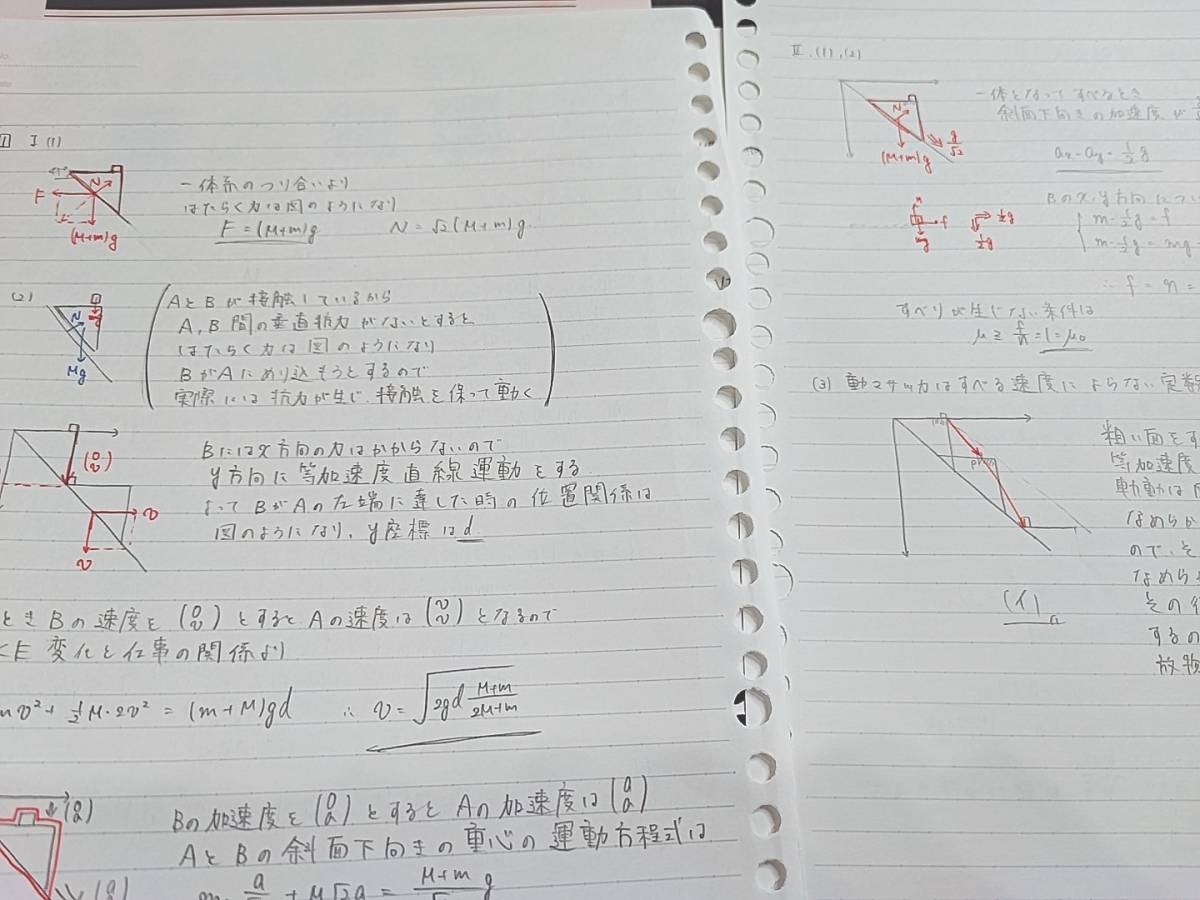 1 I (1)
F N (M+m)g
一体系のつり合いより
はたらく力は図のようになり
F = (M+m)g N = √2(M+m)g
(2)
N mg Mg
AとBが接触しているから
A,B間の垂直抗力がないとすると
はたらく力は図のようになり
BがAにめり込もうとするので
実際には抗力が生じ、接触を保って動く
(0 v)
v
v
Bにはx方向の力はかからないので
y方向に等加速度直線運動をする
よってBがAの左端に達した時の位置関係は
図のようになり、y座標はd
ときBの速度を(0 v)とするとAの速度は(v v)となるので
変化と仕事の関係より
mv²+½M・2v² = (m+M)gd ∴ v = √(2gd (M+m)/(2M+m))
(0 a)
Bの加速度を(0 a)とするとAの加速度は(a a)
AとBの斜面下向きの重心の運動方程式は
(a a)
m・a/ + M√2a = M+m/ g
II.(1),(2)
N (M+m)g g/√2
一体となってすべるとき
斜面下向きの加速度が
ax=ay=½g
n f mg ½g ½g
Bのx,y方向につい
m・½g=f
m・½g=mg
∴ f = n =
すべりが生じない条件は
μ ≥ f/n = 1 = μ₀
(3) 動マサツ力はすべる速度によらない定数
粗い面をす
等加速度
なめらか
ので、そ
なめらか
(イ)
その
するの
放物